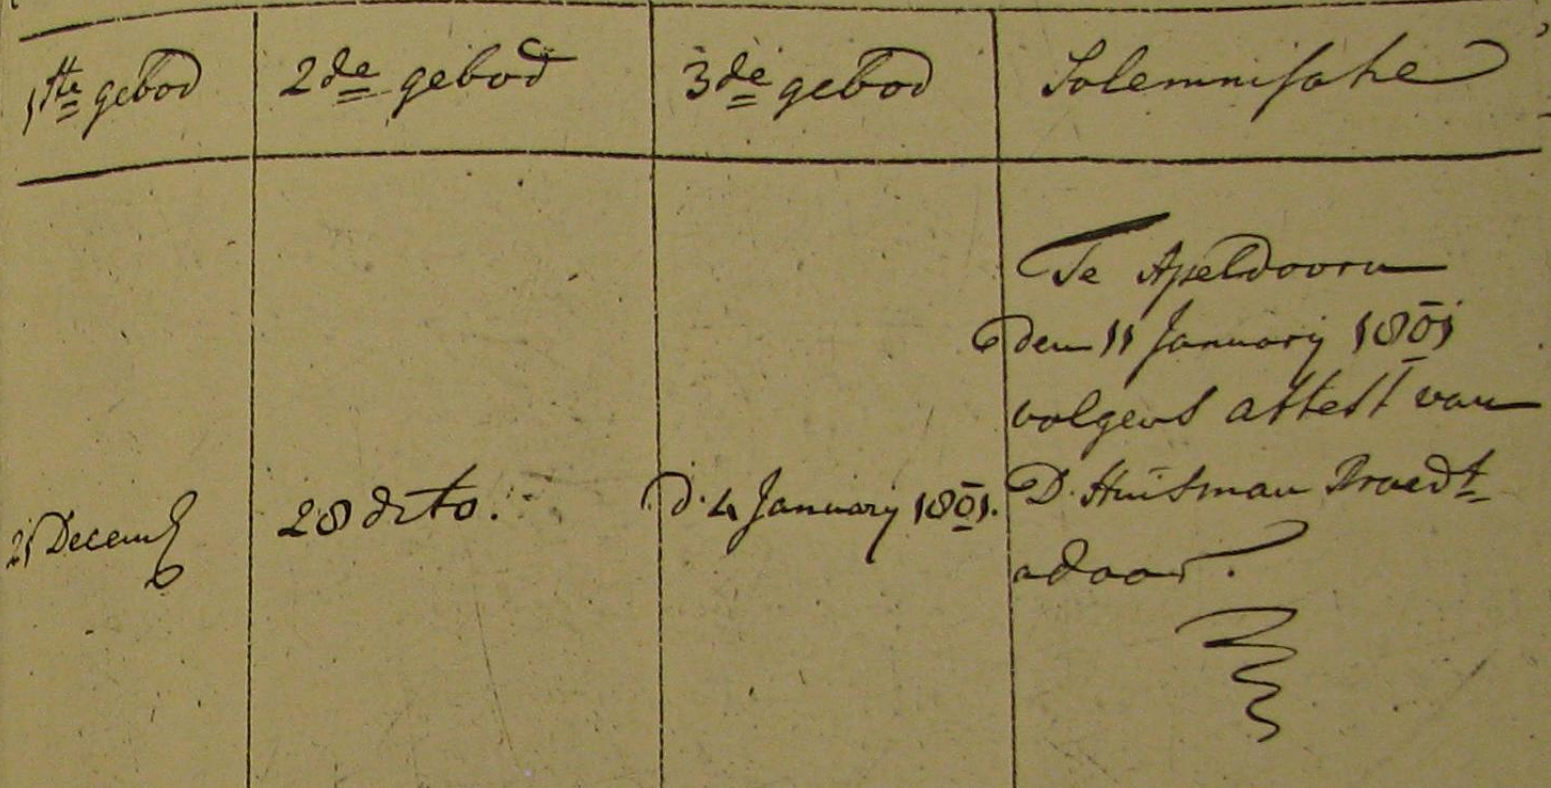 1ste gebod
2de gebod
3de gebod
Solemnisatie
21 Decemb
28 dito.
d. 4 January 1801.
Te Apeldoorn
den 11 January 1801
volgens attest van
D. Huisman Praedt
adaar.